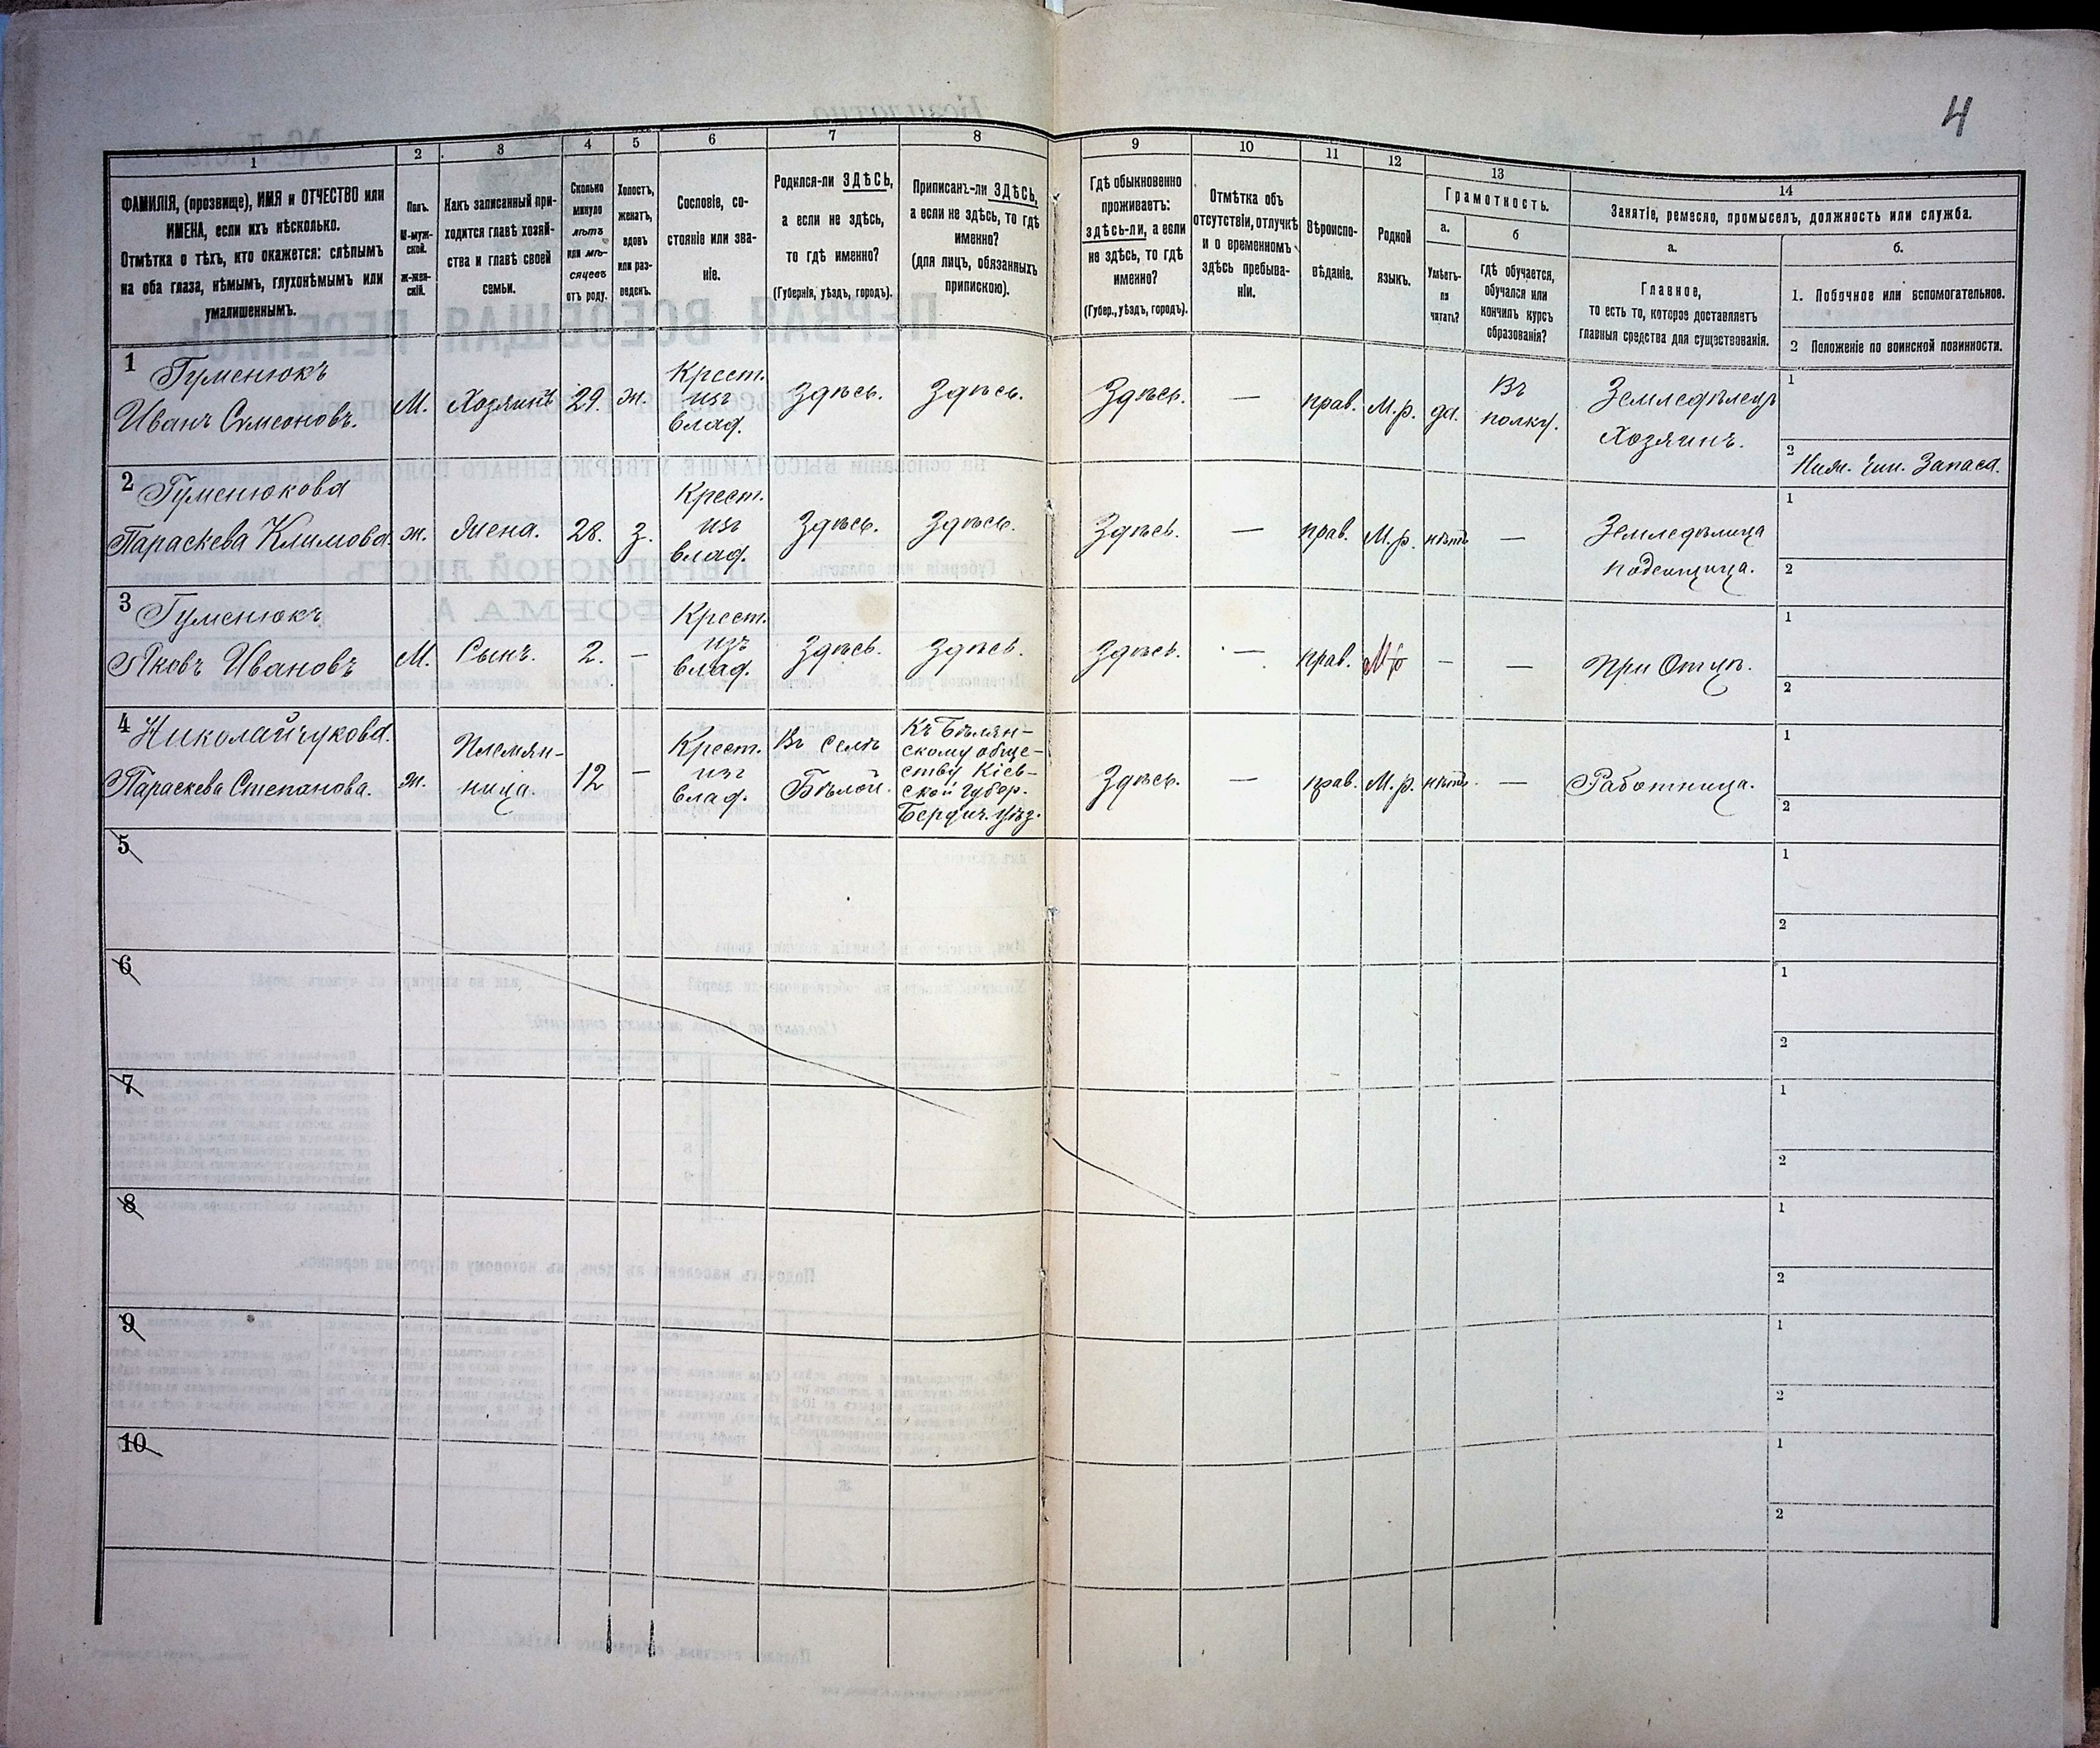 4
1
2
3
4
5
6
7
8
9
10
11
12
13
14
ФАМИЛІЯ, (прозвище), ИМЯ и ОТЧЕСТВО или
ИМЕНА, если ихъ нѣсколько.
Отмѣтка о тѣхъ, кто окажется: слѣпымъ
на оба глаза, нѣмымъ, глухонѣмымъ или
умалишеннымъ.
Полъ.
М-муж-
ской.
Ж-жен-
скій.
Какъ записанный при-
ходится главѣ хозяй-
ства и главѣ своей
семьи.
Сколько
минуло
лѣтъ
или мѣ-
сяцевъ
отъ роду.
Холостъ,
женатъ,
вдовъ
или раз-
веденъ.
Сословіе, со-
стояніе или зва-
ніе.
Родился-ли ЗДѢСЬ,
а если не здѣсь,
то гдѣ именно?
(Губернія, уѣздъ, городъ).
Приписанъ-ли ЗДѢСЬ,
а если не здѣсь, то гдѣ
именно?
(для лицъ, обязанныхъ
припискою).
Гдѣ обыкновенно
проживаетъ:
здѣсь-ли, а если
не здѣсь, то гдѣ
именно?
(Губер., уѣздъ, городъ).
Отмѣтка объ
отсутствіи, отлучкѣ
и о временномъ
здѣсь пребыва-
ніи.
Вѣроиспо-
вѣданіе.
Родной
языкъ.
Грамотность.
а.
Умѣетъ-
ли
читать?
б
гдѣ обучается,
обучался или
кончилъ курсъ
образованія?
Занятіе, ремесло, промыселъ, должность или служба.
а.
Главное,
то есть то, которое доставляетъ
главныя средства для существованія.
б.
1. Побочное или вспомогательное.
2 Положеніе по воинской повинности.
1 Гуменюкъ
Иванъ Симеоновъ.
М.
Хозяинъ
29.
ж.
Крест.
изъ
влад.
Здѣсь.
Здѣсь.
Здѣсь.
—
прав.
М.р.
да.
Въ
полку.
Земледѣлецъ
Хозяинъ.
1
2
Ниж. Чин. Запаса.
2 Гуменюкова
Параскева Климова.
ж.
Жена.
28.
З.
Крест.
изъ
влад.
Здѣсь.
Здѣсь.
Здѣсь.
—
прав.
М.р.
нѣтъ
—
Земледѣлица
поденщица.
1
2
3 Гуменюкъ
Яковъ Ивановъ
М.
Сынъ.
2.
—
Крест.
изъ
влад.
Здѣсь.
Здѣсь.
Здѣсь.
—
прав.
Мр
—
—
При Отцѣ.
1
2
4 Николайчукова.
Параскева Степанова.
ж.
Племян-
ница.
12
—
Крест.
изъ
влад.
Въ селѣ
Бѣлой.
Къ Бѣлян-
скому обще-
ству Кіев-
ской Губер.
Бердич. Уѣз.
Здѣсь.
—
прав.
М.р.
нѣтъ.
—
Работница.
1
2
5
1
2
6
1
2
7
1
2
8
1
2
9
1
2
10
1
2